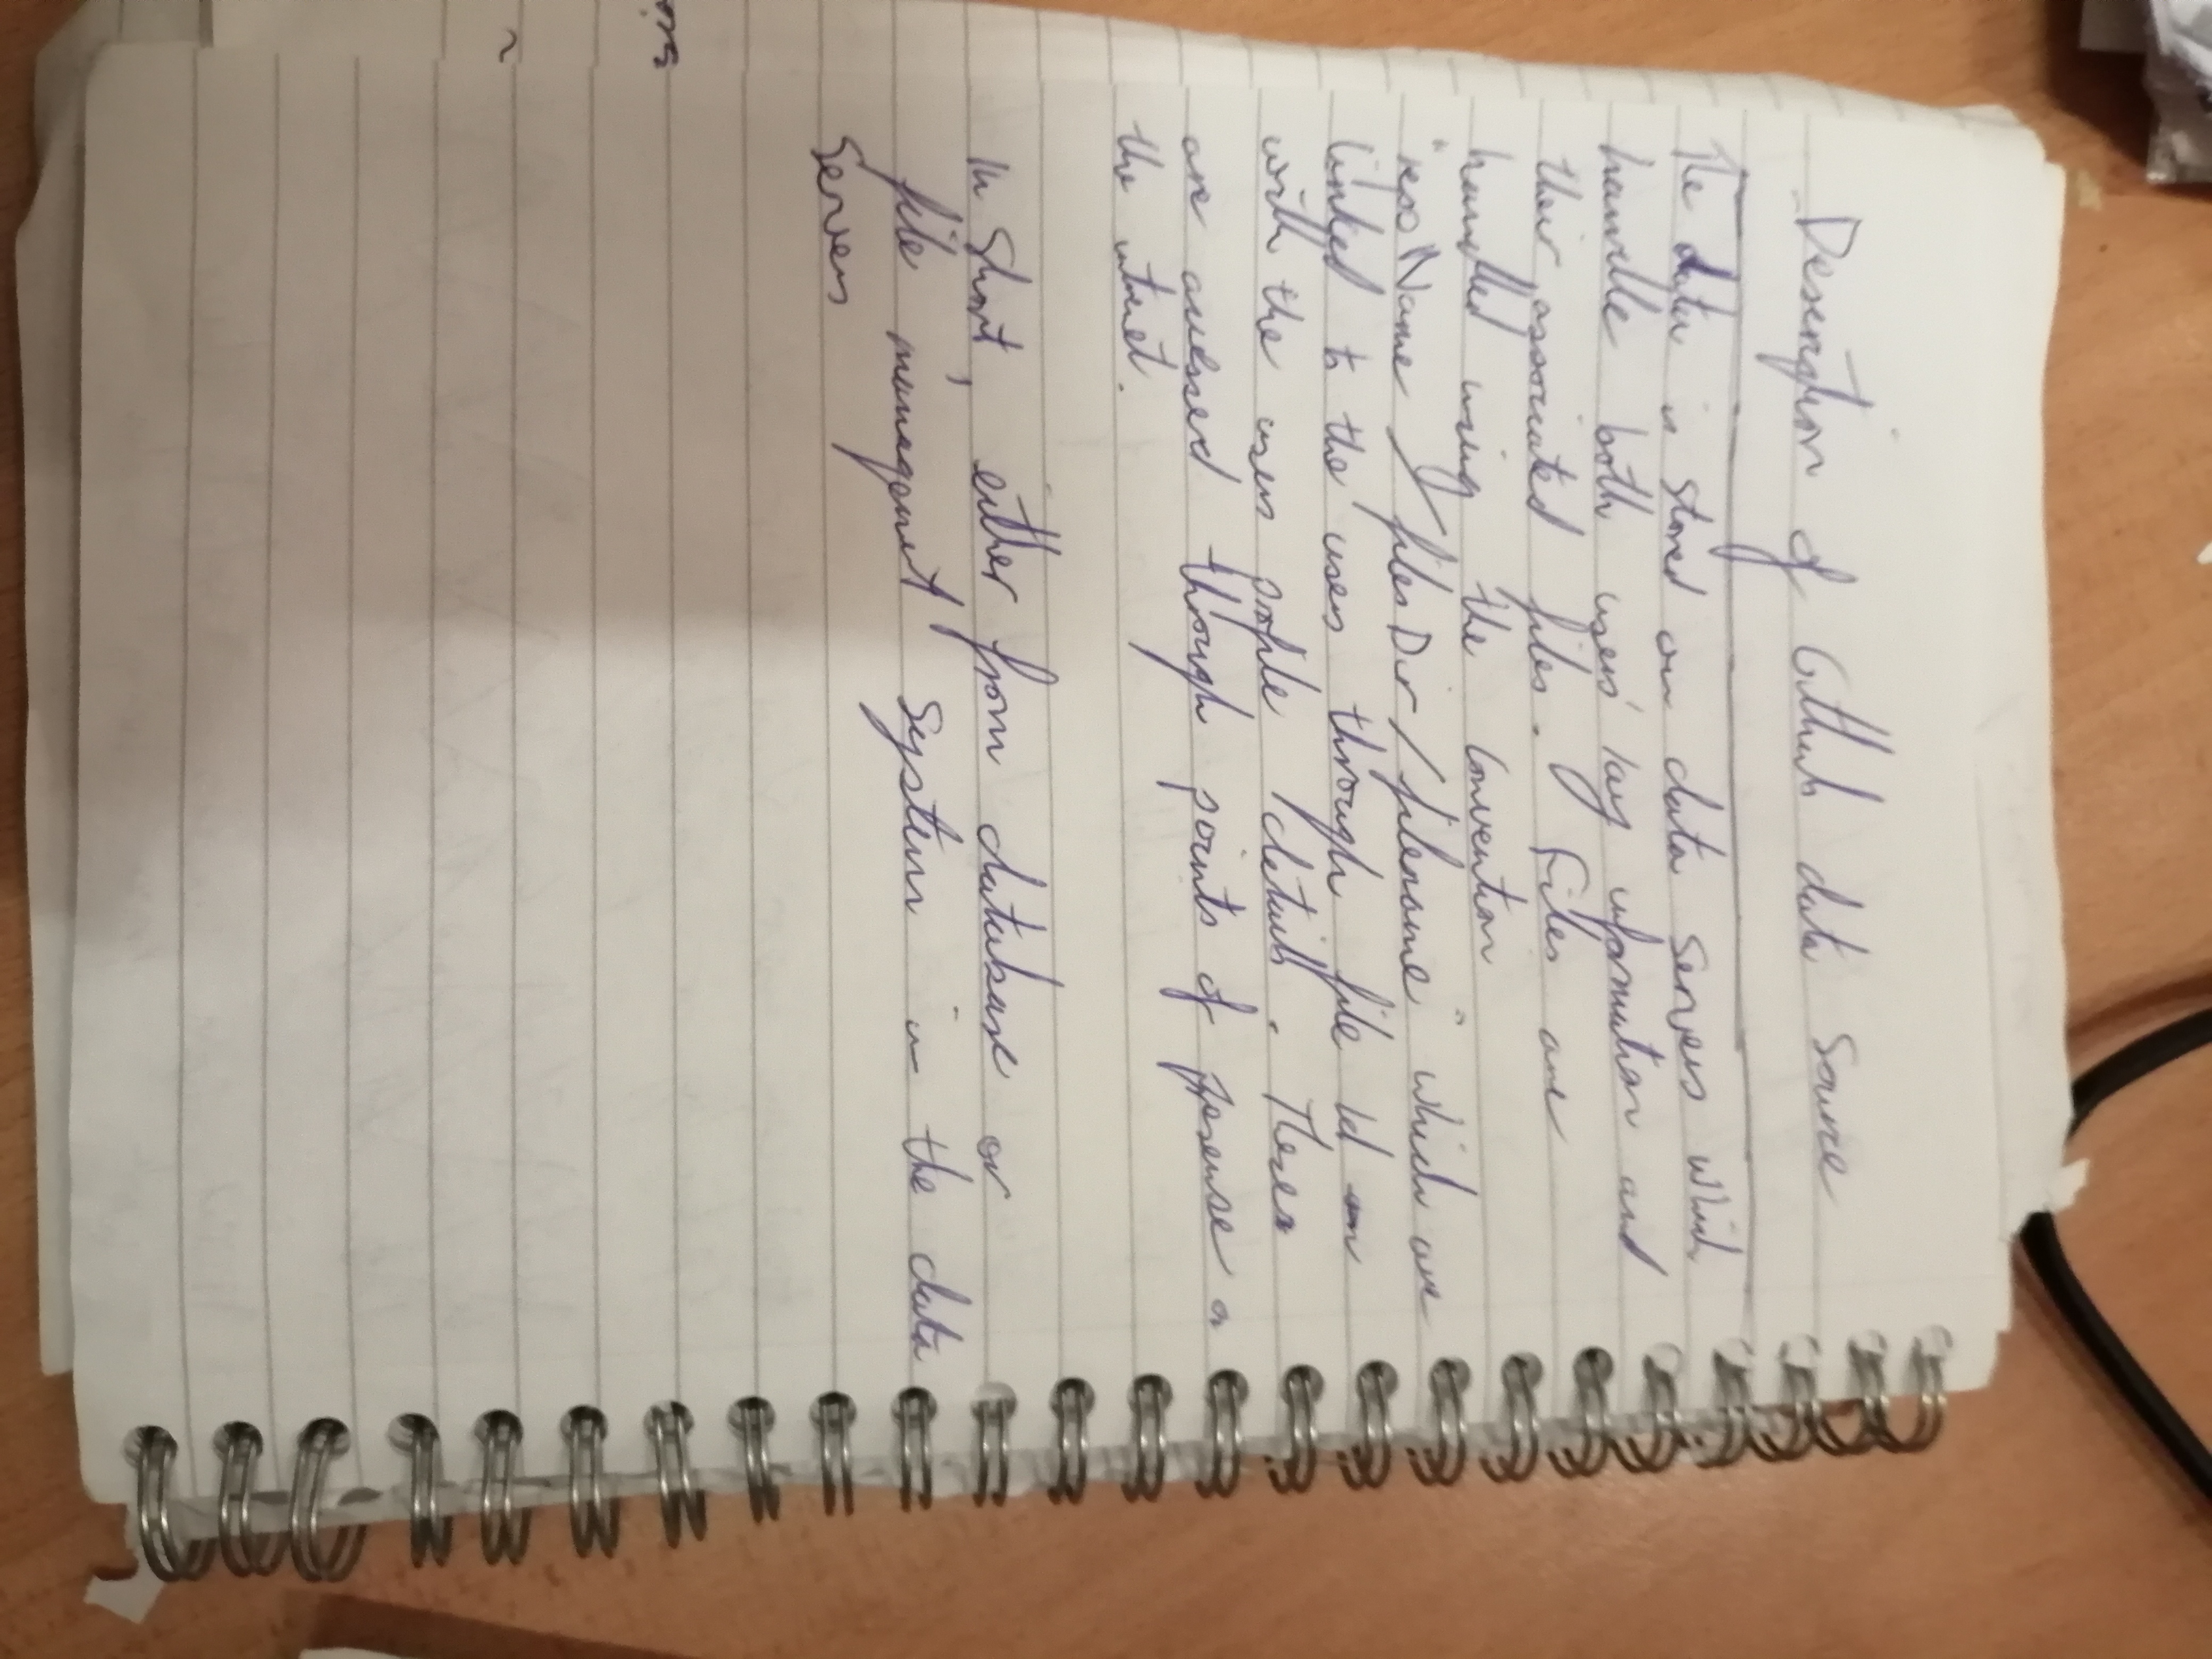 Description of Github data Source
The data is stored on data servers which
handle both users' key information and
their associated files. Files are
handled using the convention
"repoName / filesDir / filename" which are
linked to the users through file Id
with the users profile details. These
are accessed through points of presense o
the internet.
In Short, either from database or
file management system in the data
Servers